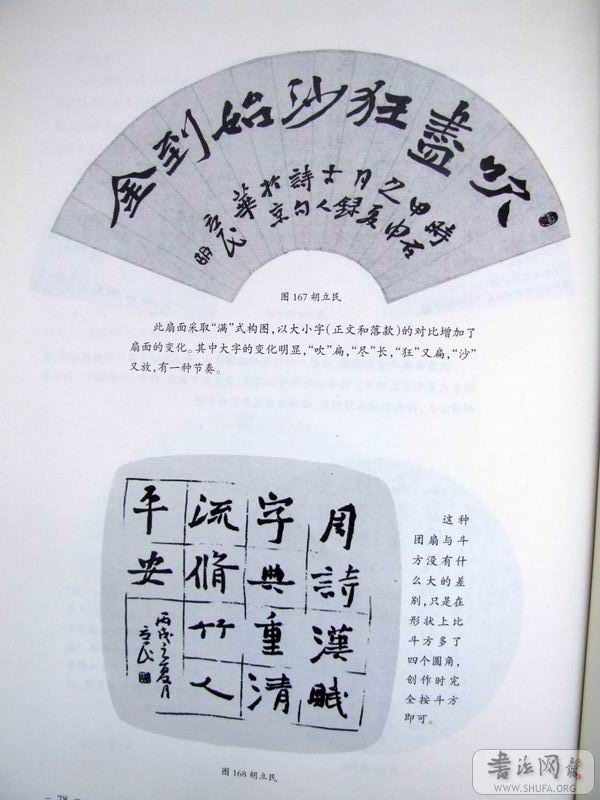 吹盡狂沙始到金
時在甲申之夏月錄古人詩句於京華
立民
图 167 胡立民
此扇面采取“满”式构图,以大小字(正文和落款)的对比增加了
扇面的变化。其中大字的变化明显,“吹”扁,“尽”长,“狂”又扁,“沙”
又放,有一种节奏。
周詩漢賦
字典重清
流脩竹人
平安
丙戌之夏月
立民
这种
团扇与斗
方没有什
么大的差
别,只是在
形状上比
斗方多了
四个圆角,
创作时完
全按斗方
即可。
图 168 胡立民
– 78 –
书法网
WWW.SHUFA.ORG